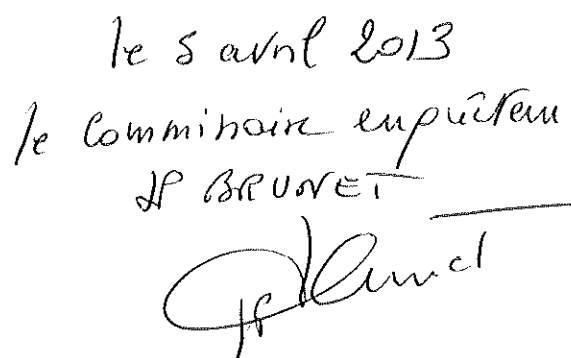 le 5 avril 2013
le Commissaire enquêteur
JP BRUNET